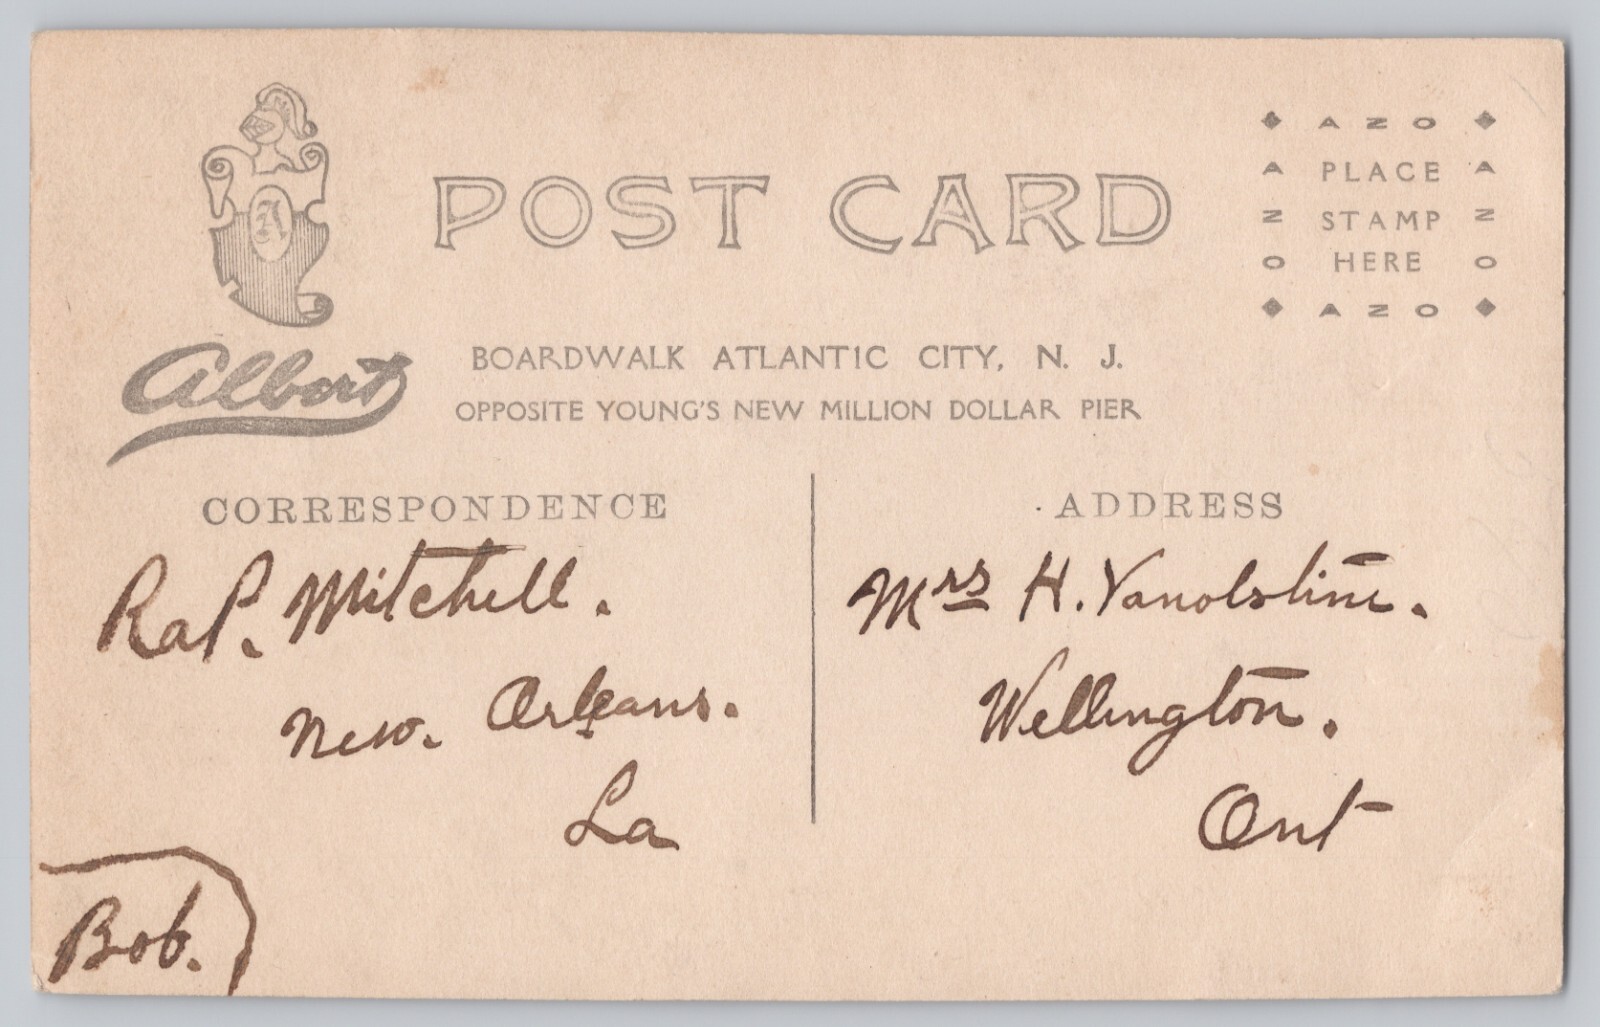 POST CARD
A
Albert
BOARDWALK ATLANTIC CITY, N. J.
OPPOSITE YOUNG'S NEW MILLION DOLLAR PIER
AZO
A PLACE A
Z STAMP Z
O HERE O
AZO
CORRESPONDENCE
Mitchell.
New. Orleans.
La
Bob.
ADDRESS
Mrs H.
Wellington.
Ont